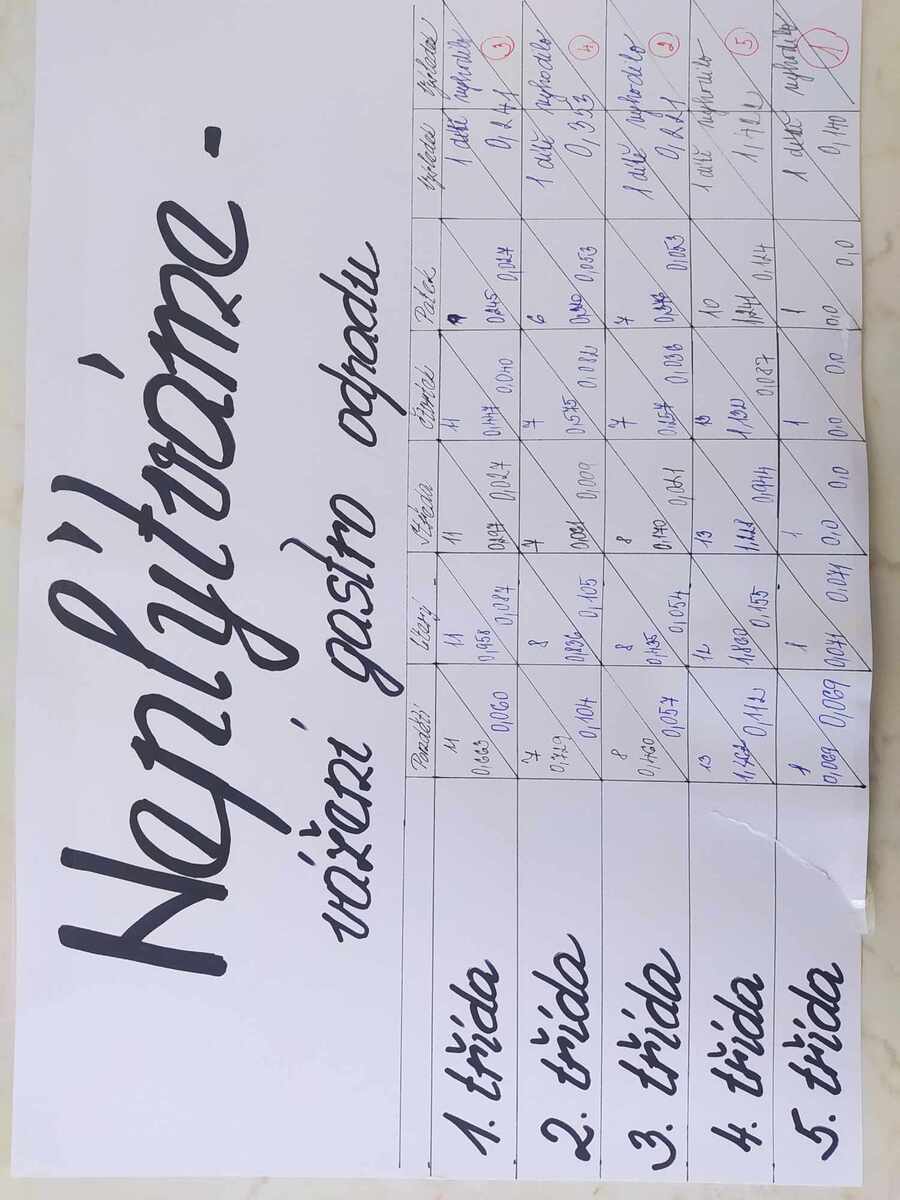 Neplýtváme -
vážení gastro odpadu
Pondělí Úterý Středa Čtvrtek Pátek výsledek výsledek
1. třída 11 0,663 0,060 11 0,958 0,087 11 0,297 0,027 11 0,447 0,040 0,245 0,027 1 dítě vyhodilo 0,241 3
2. třída 7 0,729 0,104 8 0,836 0,105 7 0,009 7 0,575 0,082 6 0,053 1 dítě vyhodilo 0,353 4
3. třída 8 0,460 0,057 8 0,435 0,054 8 0,170 0,021 7 0,257 0,036 7 0,053 1 dítě vyhodilo 0,221 2
4. třída 13 1,462 0,112 12 1,860 0,155 13 1,228 0,944 13 1,132 0,087 10 1,241 0,124 1 dítě vyhodilo 1,422 5
5. třída 1 0,069 0,069 1 0,071 0,071 1 0,0 0,0 1 0,0 0,0 1 0,0 0,0 1 dítě vyhodilo 0,140 1